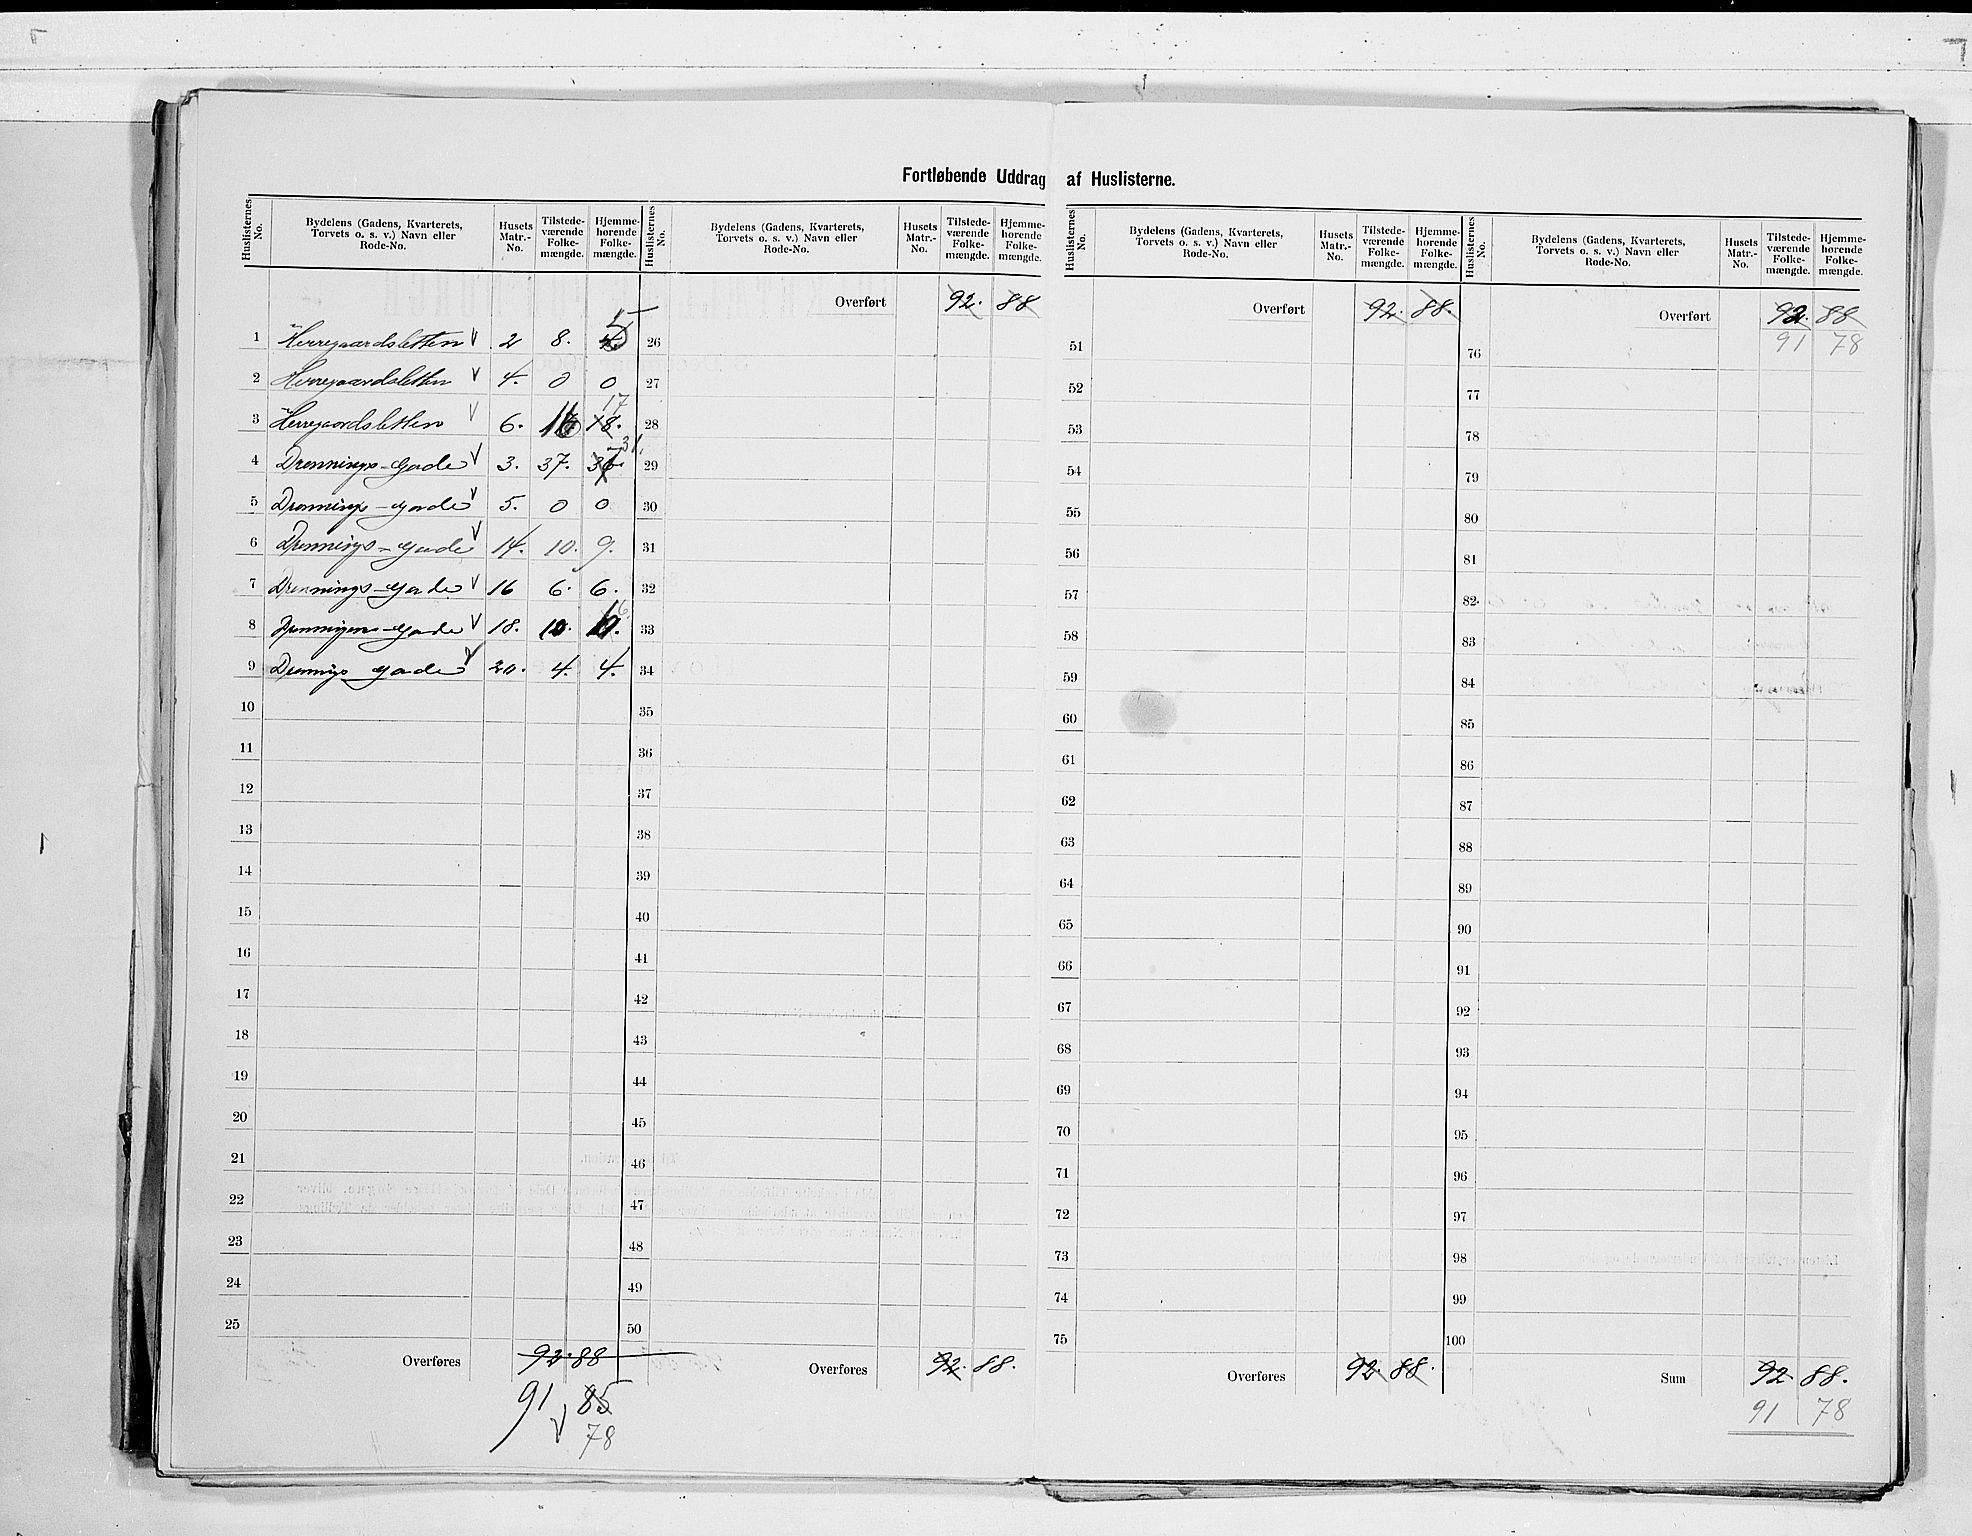 Fortløbende Uddrag af Huslisterne.
Huslisternes No. | Bydelens (Gadens, Kvarterets, Torvets o. s. v.) Navn eller Rode-No. | Husets Matr.-No. | Tilstede-værende Folke-mængde. | Hjemme-hørende Folke-mængde.
1 Herregaardsletten V 2 8. 5
2 Herregaardsletten V 4. 0 0
3 Herregaardsletten V 6. 16 18. 17
4 Dronnings-Gade V 3. 37. 31.
5 Dronnings-Gade V 5. 0 0
6 Dronnings-Gade V 14. 10. 9.
7 Dronnings-Gade V 16 6. 6.
8 Dronningens-Gade V 18. 10. 6
9 Dronnings Gade V 20. 4. 4.
10
11
12
13
14
15
16
17
18
19
20
21
22
23
24
25
Overføres 92. 88
91 85
V 78
Huslisternes No. | Bydelens (Gadens, Kvarterets, Torvets o. s. v.) Navn eller Rode-No. | Husets Matr.-No. | Tilstede-værende Folke-mængde. | Hjemme-hørende Folke-mængde.
Overført 92. 88
26
27
28
29
30
31
32
33
34
35
36
37
38
39
40
41
42
43
44
45
46
47
48
49
50
Overføres 92. 88.
Huslisternes No. | Bydelens (Gadens, Kvarterets, Torvets o. s. v.) Navn eller Rode-No. | Husets Matr.-No. | Tilstede-værende Folke-mængde. | Hjemme-hørende Folke-mængde.
Overført 92. 88.
51
52
53
54
55
56
57
58
59
60
61
62
63
64
65
66
67
68
69
70
71
72
73
74
75
Overføres 92. 88.
Huslisternes No. | Bydelens (Gadens, Kvarterets, Torvets o. s. v.) Navn eller Rode-No. | Husets Matr.-No. | Tilstede-værende Folke-mængde. | Hjemme-hørende Folke-mængde.
Overført 92. 88
91 78
76
77
78
79
80
81
82
83
84
85
86
87
88
89
90
91
92
93
94
95
96
97
98
99
100
Sum 92 88.
91 78